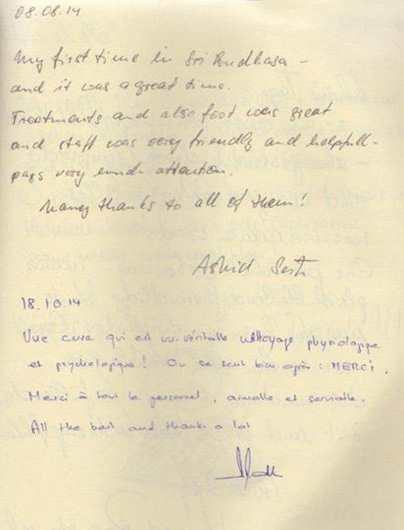 08.08.14
My first time in Sri Budhasa –
and it was a great time.
Treatments and also foot was great
and staff was very friendly and helpfull –
pays very much attention.
Many thanks to all of them!
Astrid
18.10.14
Une cure qui est un véritable nettoyage physiologique
et psychologique! On se sent bien après : MERCI.
Merci à tout le personnel, aimable et serviable.
All the best and thanks a lot